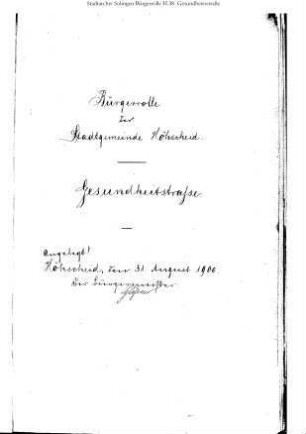 Stadtarchiv Solingen Bürgerrolle H 38: Gesundheitsstraße
Bürgerrolle
der
Stadtgemeinde Höhscheid.
Gesundheitstrasse
Angelegt!
Höhscheid, den 31 August 1900
Der Bürgermeister